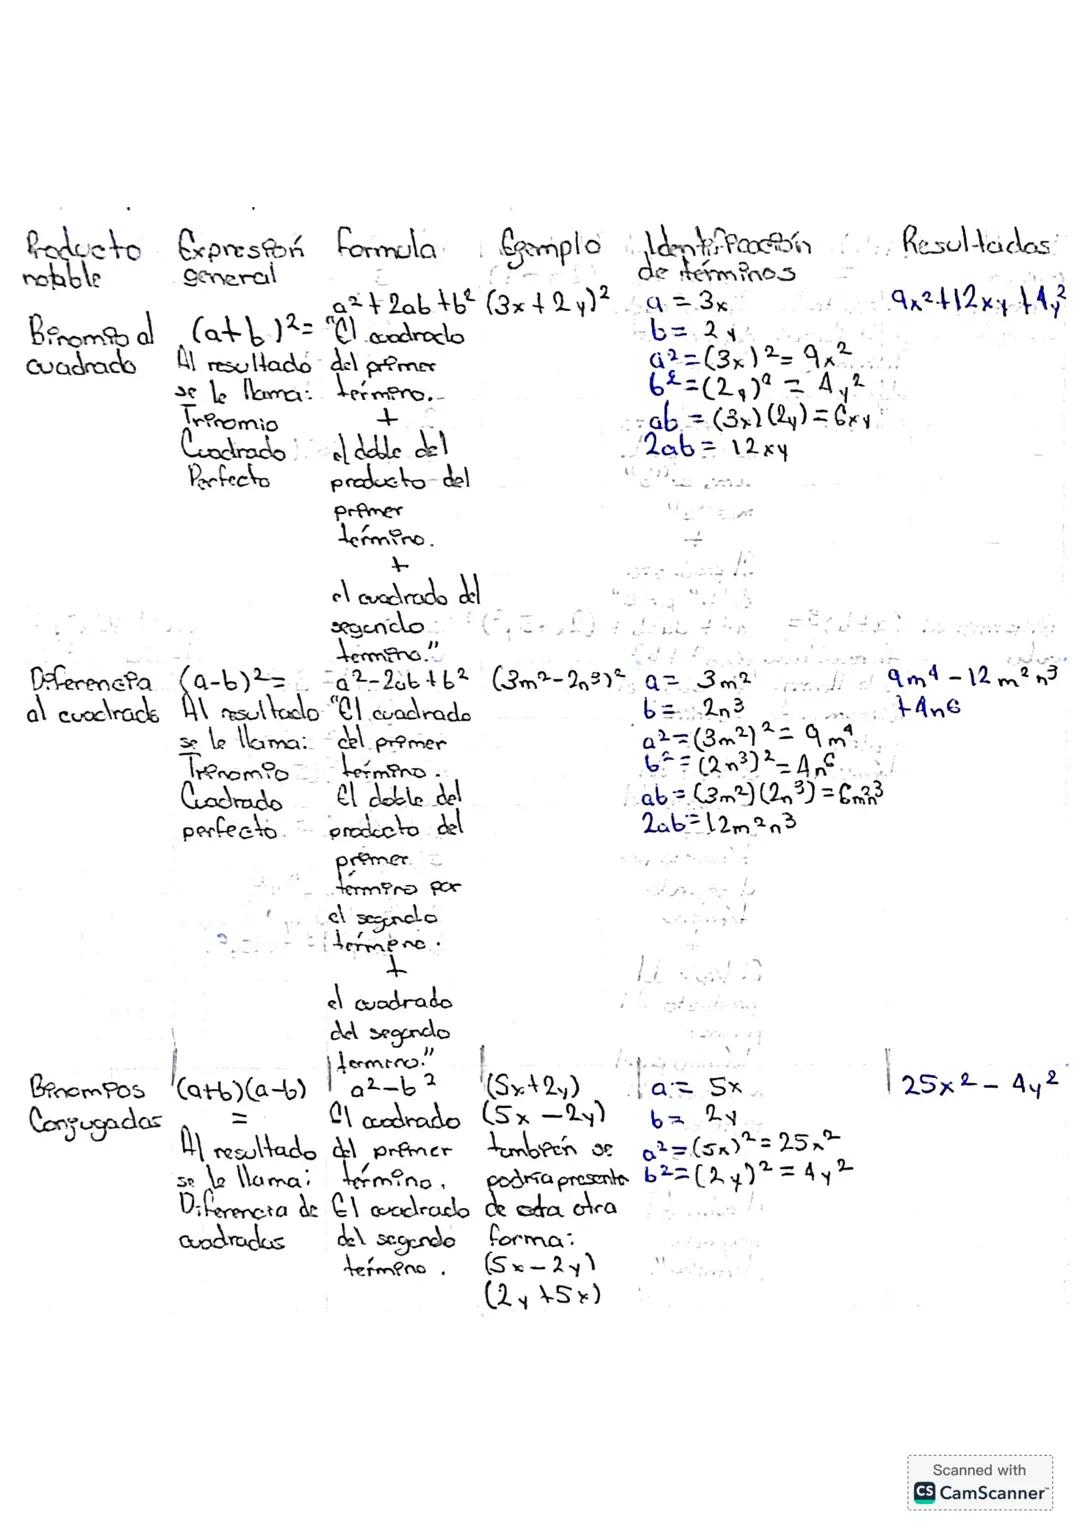 Producto notable | Expresión general | Formula | Egemplo | Identificación de términos | Resultados
Binomio al cuadrado
(a+b)²=
Al resultado
se le llama:
Trinomio
Cuadrado
Perfecto
a²+2ab+b²
"El cuadrado
del primer
término.
+
el doble del
producto del
primer
término.
+
el cuadrado del
segundo
termino."
(3x+2y)²
a = 3x
b = 2y
a²=(3x)²=9x²
b²=(2y)²=4y²
ab=(3x)(2y)=6xy
2ab=12xy
9x²+12xy+4y²
Diferencia
al cuadrado
(a-b)²=
Al resultado
se le llama:
Trinomio
Cuadrado
perfecto.
a²-2ab+b²
"El cuadrado
del primer
término.
El doble del
producto del
primer
término por
el segundo
término.
+
el cuadrado
del segundo
termino."
(3m²-2n³)²
a= 3m²
b= 2n³
a²=(3m²)²=9m⁴
b²=(2n³)²=4n⁶
ab=(3m²)(2n³)=6m²n³
2ab=12m²n³
9m⁴-12m²n³
+4n6
Binomios
Conjugadas
(a+b)(a-b)
=
Al resultado
se le llama:
Diferencia de
cuadradas
a²-b²
El cuadrado
del primer
término.
El cuadrado
del segundo
término.
(5x+2y)
(5x-2y)
también se
podría presente
de esta otra
forma:
(5x-2y)
(2y+5x)
a= 5x
b= 2y
a²=(5x)²=25x²
b²=(2y)²=4y²
25x²-4y²
Scanned with
CS CamScanner